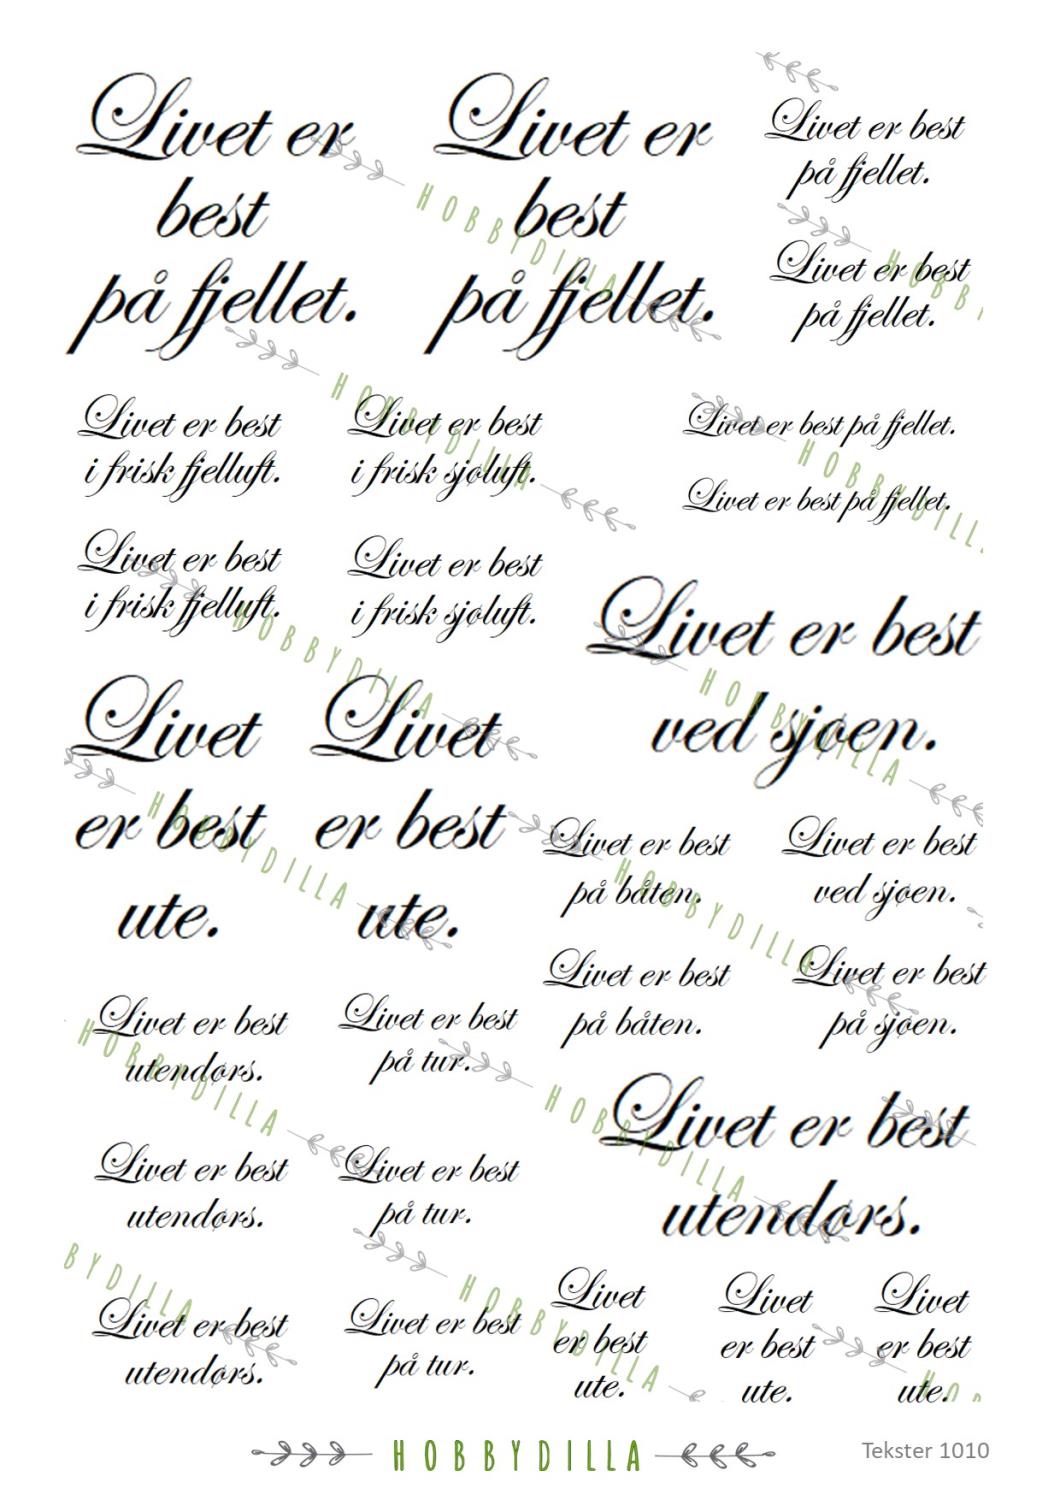 Livet er
best
på fjellet.
Livet er
best
på fjellet.
Livet er best
på fjellet.
Livet er best
på fjellet.
Livet er best
i frisk fjelluft.
Livet er best
i frisk sjøluft.
Livet er best på fjellet.
Livet er best på fjellet.
Livet er best
i frisk fjelluft.
Livet er best
i frisk sjøluft.
Livet er best
ved sjøen.
Livet
er best
ute.
Livet
er best
ute.
Livet er best
på båten.
Livet er best
ved sjøen.
Livet er best
på båten.
Livet er best
på sjøen.
Livet er best
utendørs.
Livet er best
på tur.
Livet er best
utendørs.
Livet er best
utendørs.
Livet er best
på tur.
Livet er best
utendørs.
Livet er best
på tur.
Livet
er best
ute.
Livet
er best
ute.
Livet
er best
ute.
HOBBYDILLA
HOBBYDILLA
HOBBYDILLA
HOBBYDILLA
HOBBYDILLA
HOBBYDILLA
HOBBYDILLA
HOBBYDILLA
HOBBYDILLA
HOBBYDILLA
BYDILLA
HOBBYDILLA
HOBBYDILLA
Tekster 1010